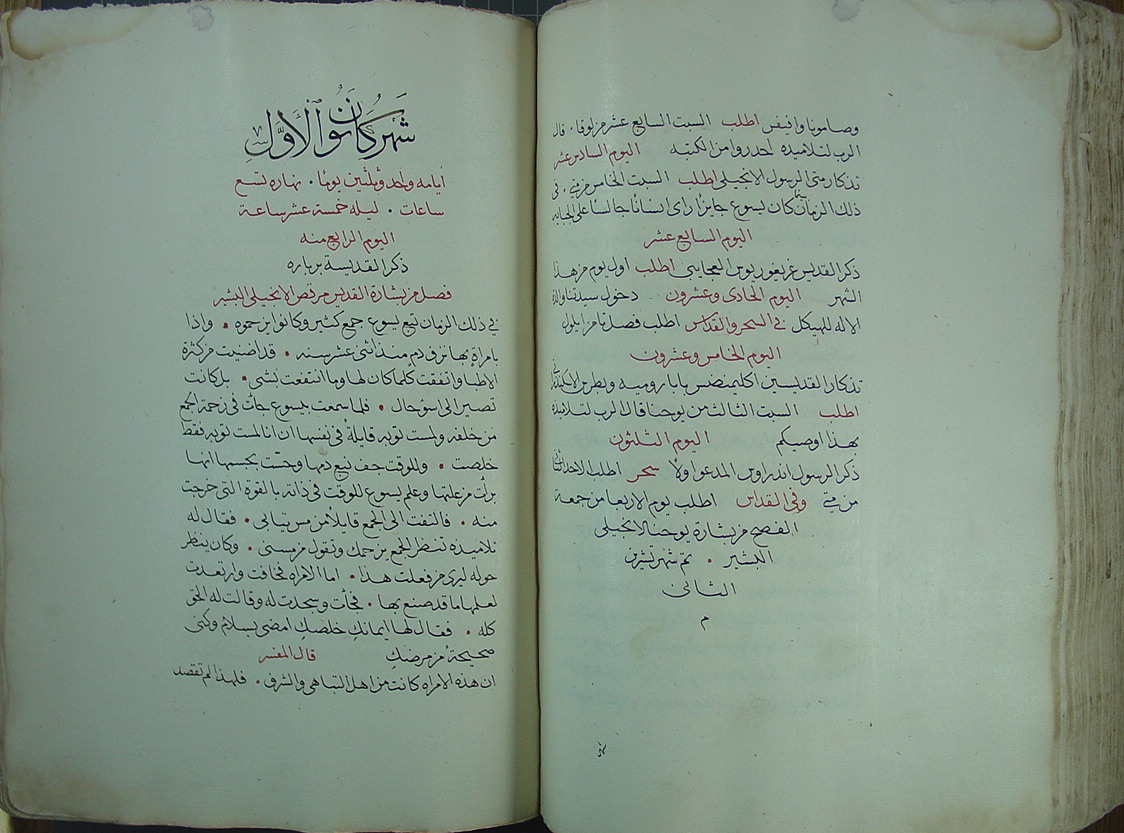 وصامونا وافيفس اطلب السبت السابع عشر من لوقا. قال
الرب لتلاميذه احذروا من الكتبه اليوم السادس عشر
تذكار متى الرسول الانجيلي اطلب السبت الخامس من متى. في
ذلك الزمان كان يسوع جايزا راى انسانا جالسا على الجبايه
اليوم السابع عشر
ذكر القديس غريغوريوس العجايبي اطلب اول يوم من هذا
الشهر اليوم الحادى وعشرون دخول سيدتنا والدة
الاله للهيكل في السحر والقداس اطلب فصلنا من ايلول
اليوم الخامس وعشرون
تذكار القديسين اكليمنضس بابا روميه وبطرس
اطلب السبت الثالث من يوحنا قال الرب لتلاميذه
بهذا اوصيكم اليوم الثلثون
ذكر الرسول اندراوس المدعو اولا سحر اطلب الاحد
من متى وفي القداس اطلب يوم الاربعا من جمعة
الفصح من بشارة يوحنا الانجيلى
البشير. تم شهر تشرين
الثانى
م
شهر كانون الاوّل
ايامه واحد وثلثين يومًا. نهاره تسع
ساعات. ليله خمسة عشر ساعة
اليوم الرابع منه
ذكر القديسة برباره
فصل من بشارة القديس مرقص الانجيلى البشير
في ذلك الزمان تبع يسوع جمع كثير وكانوا يزحموه. واذا
بامراةٍ بها نزف دمٍ منذ اثنى عشر سنه. قد اضنيت من كثرة
الاطبا وانفقت كلما كان لها وما انتفعت بشى. بل كانت
تصير الى اسوَ حال. فلما سمعت بيسوع جات في زحمة الجمع
من خلفه ولمست ثوبه قايلةً في نفسها ان انا لمست ثوبه فقط
خلصت. وللوقت جف نبع دمها وحسّت بجسمها انها
برات من علتها وعلم يسوع للوقت في ذاته بالقوة التى خرجت
منه. فالتفت الى الجمع قايلاً من مس ثيابى. فقال له
تلاميذه تنظر الجمع يزحمك وتقول من مسنى. وكان ينظر
حوله ليرى من فعلت هذا. اما الامراه فخافت وارتعدت
لعلمها ما قد صنع بها. فجات وسجدت له وقالت له الحق
كله. فقال لها ايمانكِ خلصكِ امضى بسلامٍ وكنى
صحيحةً من مرضكِ قال المفسر
ان هذه الامراه كانت من اهل التباهى والشرف. فلهذا لم تقصد